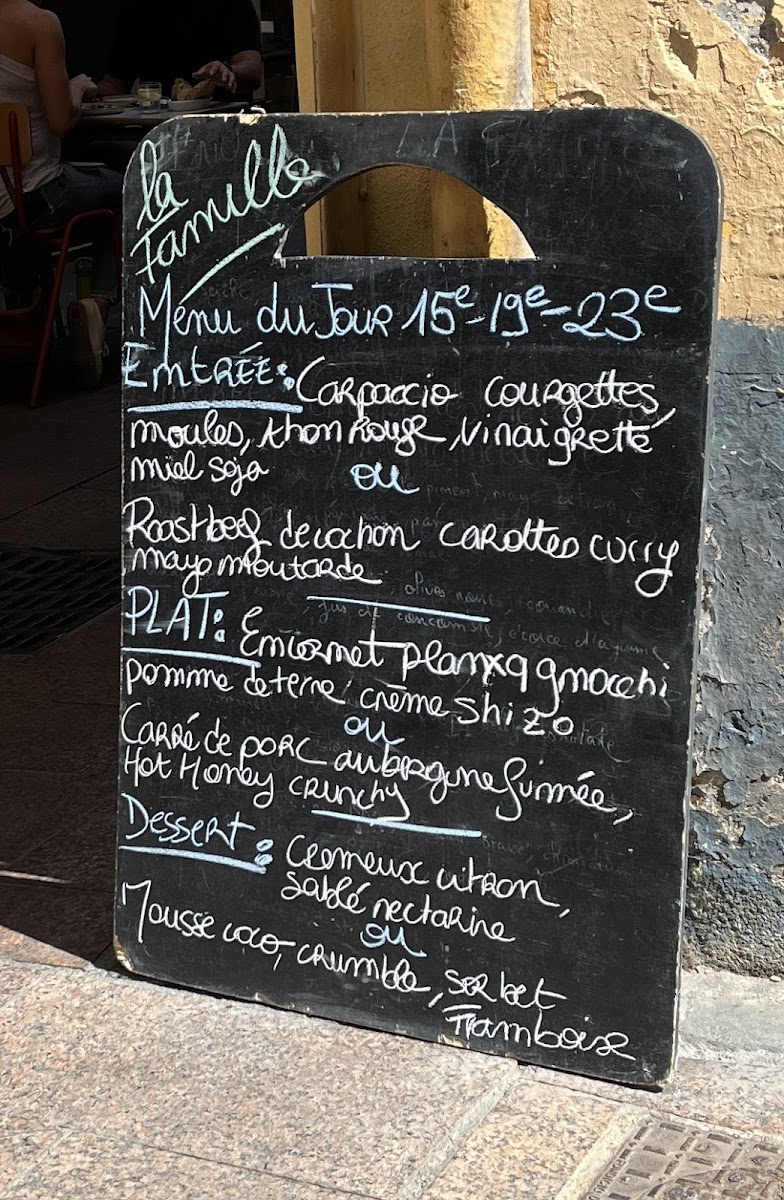 la
Famille
Menu du Jour 15e-19e-23e
Entrée: Carpaccio courgettes,
moules, thon rouge, vinaigrette
miel soja
ou
Roastbeef de cochon carottes curry
mayo moutarde
PLAT: Émiornet planxa gnocchi
pomme de terre crème shizo
ou
Carré de porc aubergine fumée,
Hot Honey crunchy
Dessert: Crémeux citron,
sablé nectarine
ou
Mousse coco, crumble, sorbet
Framboise